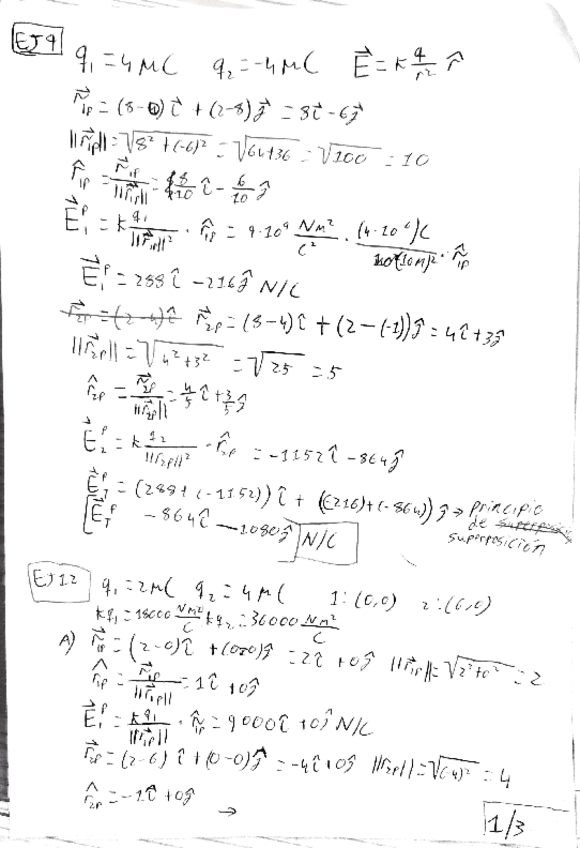 EJ 9
q₁ = 4 μC q₂ = -4 μC E⃗ = k q/r² r̂
r⃗₁ₚ = (8-0) î + (2-8) ĵ = 8î - 6ĵ
||r⃗₁ₚ|| = √(8² + (-6)²) = √(64+36) = √100 = 10
r̂₁ₚ = r⃗₁ₚ/||r⃗₁ₚ|| = 8/10 î - 6/10 ĵ
E⃗₁ᴾ = k q₁/||r⃗₁ₚ||² · r̂₁ₚ = 9·10⁹ Nm²/C² · (4·10⁻⁶)C/(10m)² · r̂₁ₚ
E⃗₁ᴾ = 288 î - 216 ĵ N/C
r⃗₂ₚ = (8-4) î + (2-(-1)) ĵ = 4î + 3ĵ
||r⃗₂ₚ|| = √(4² + 3²) = √25 = 5
r̂₂ₚ = r⃗₂ₚ/||r⃗₂ₚ|| = 4/5 î + 3/5 ĵ
E⃗₂ᴾ = k q₂/||r₂ₚ||² · r̂₂ₚ = -1152 î - 864 ĵ
E⃗_Tᴾ = (288 + (-1152)) î + ((-216) + (-864)) ĵ → principio
de
superposición
E⃗_Tᴾ -864 î - 1080 ĵ N/C
EJ 12 q₁ = 2 μC q₂ = 4 μC 1: (0,0) 2: (6,0)
kq₁ = 18000 Nm²/C kq₂ = 36000 Nm²/C
A) r⃗₁ₚ = (2-0) î + (0-0) ĵ = 2î + 0ĵ ||r⃗₁ₚ|| = √(2² + 0²) = 2
r̂₁ₚ = r⃗₁ₚ/||r⃗₁ₚ|| = 1î + 0ĵ
E⃗₁ᴾ = kq₁/||r⃗₁ₚ|| · r̂₁ₚ = 9000 î + 0ĵ N/C
r⃗₂ₚ = (2-6) î + (0-0) ĵ = -4î + 0ĵ ||r⃗₂ₚ|| = √(-4)² = 4
r̂₂ₚ = -1î + 0ĵ →
1/3